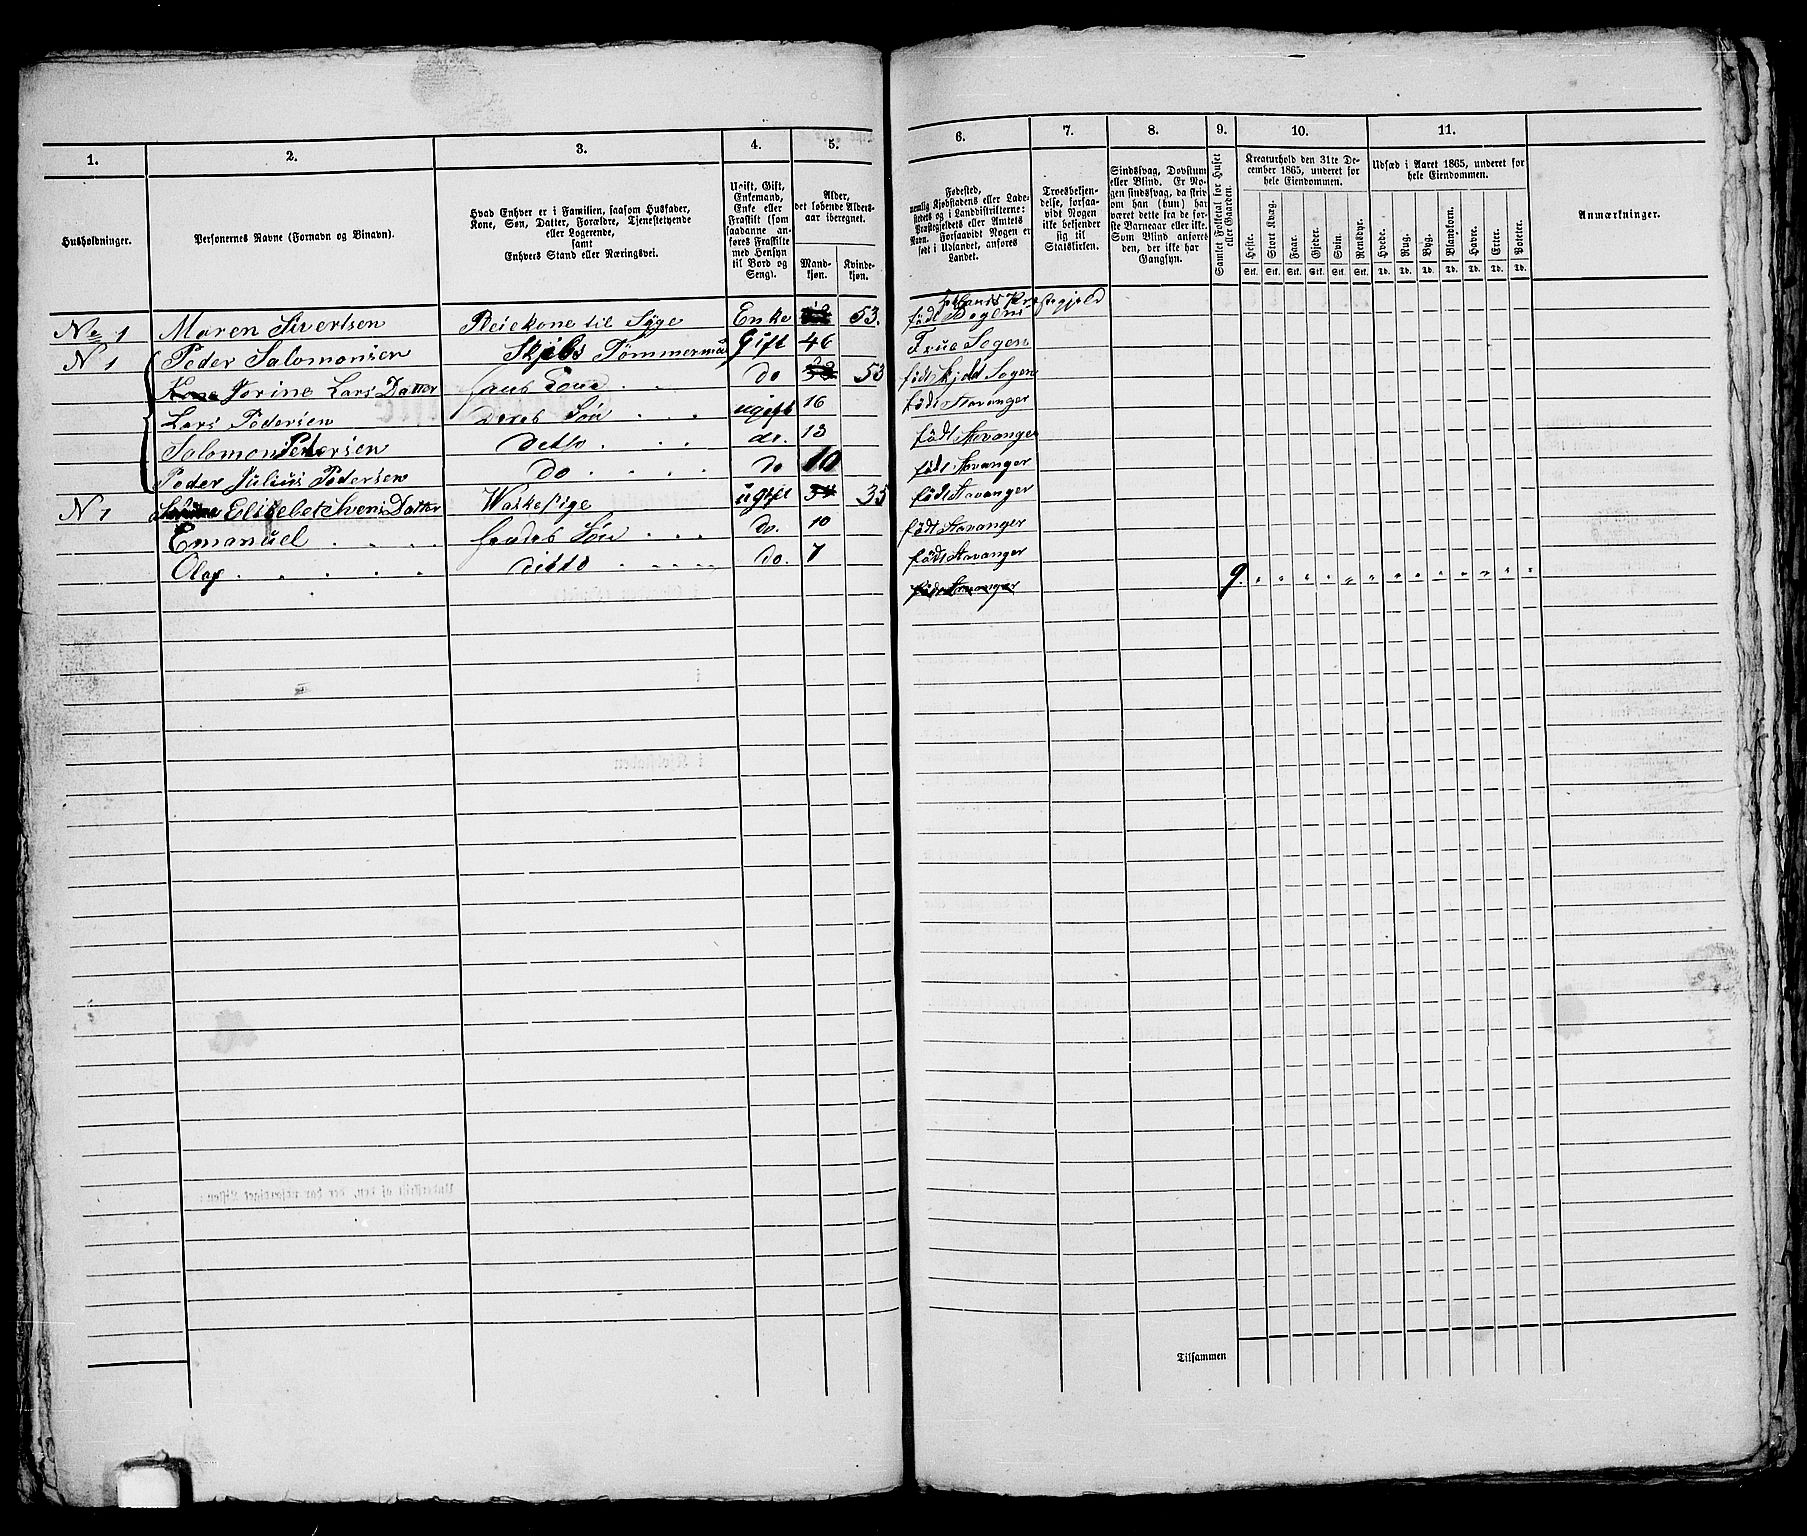 1. 2. 3. 4. 5. 6. 7. 8. 9. 10. 11.
Husholdninger.
Personernes Navne (Fornavn og Binavn).
Hvad Enhver er i Familien, saasom Husfader,
Kone, Søn, Datter, Forældre, Tjenestetyende
eller Logerende,
samt
Enhvers Stand eller Næringsvei.
Ugift, Gift,
Enkemand,
Enke eller
Fraskilt (som
saadanne an-
føres Fraskilte
med Hensyn
til Bord og
Seng).
Alder,
det løbende Alders-
aar iberegnet.
Mand-
kjøn.
Kvinde-
kjøn.
Fødested,
nemlig Kjøbstadens eller Lade-
stedets og i Landdistrikterne:
Præstegjeldets eller Amtets
Navn. Forsaavidt Nogen er
født i Udlandet, anføres
Landet.
Troesbekjen-
delse, forsaa-
vidt Nogen
ikke bekjender
sig til
Statskirken.
Sindssvag, Døvstum
eller Blind. Er No-
gen sindssvag, da skriv
om han (hun) har
været dette fra de før-
ste Barneaar eller ikke.
Som Blind anføres
den, der ikke har
Gangsyn.
Samlet Folketal for Huset
eller Gaarden.
Kreaturhold den 31te De-
cember 1865, underet for
hele Eiendommen.
Heste. Stort Kvæg. Faar. Gjeder. Svin. Rensdyr.
Stk. Stk. Stk. Stk. Stk. Stk.
Udsæd i Aaret 1865, underet for
hele Eiendommen.
Hvede. Rug. Byg. Blandkorn. Havre. Erter. Poteter.
Td. Td. Td. Td. Td. Td. Td.
Anmærkninger.
No 1 Maren Sivertsen Pleiekone til Syge Enke 53. født Præstegjeld
N 1 Peder Salomonsen Skibs Tømmermand Gift 46 Frue Sogen
Kone Torine Lars Datter hans Kone do 53 født Skjold Sogen
Lars Pedersen Deres Søn ugift 16 født Stavanger
Salomon Pedersen Ditto do. 13 født Stavanger
Peder Julius Pedersen Do do 10 født Stavanger
N 1 Elisebet Datter Waskepige ugift 34 35 født Stavanger
Emanuel hendes Søn do. 10 født Stavanger
Olaf ditto do. 7 født Stavanger
født Stavanger 9.
Tilsammen